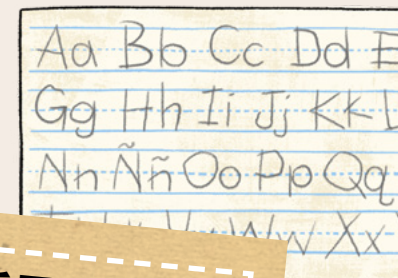 Aa Bb Cc Dd E
Gg Hh Ii Jj Kk
Nn Ññ Oo Pp Qq
Ww Xx